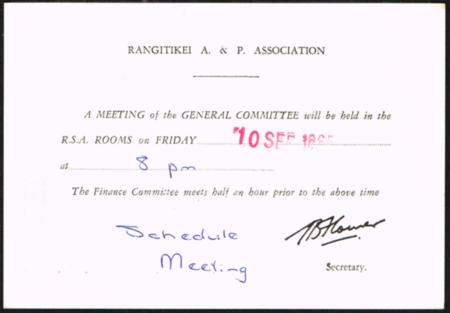 RANGITIKEI A. & P. ASSOCIATION
A MEETING of the GENERAL COMMITTEE will be held in the
R.S.A. ROOMS on FRIDAY 10 SEP
at 8 pm
The Finance Committee meets half an hour prior to the above time
Schedule
Meeting
Secretary.